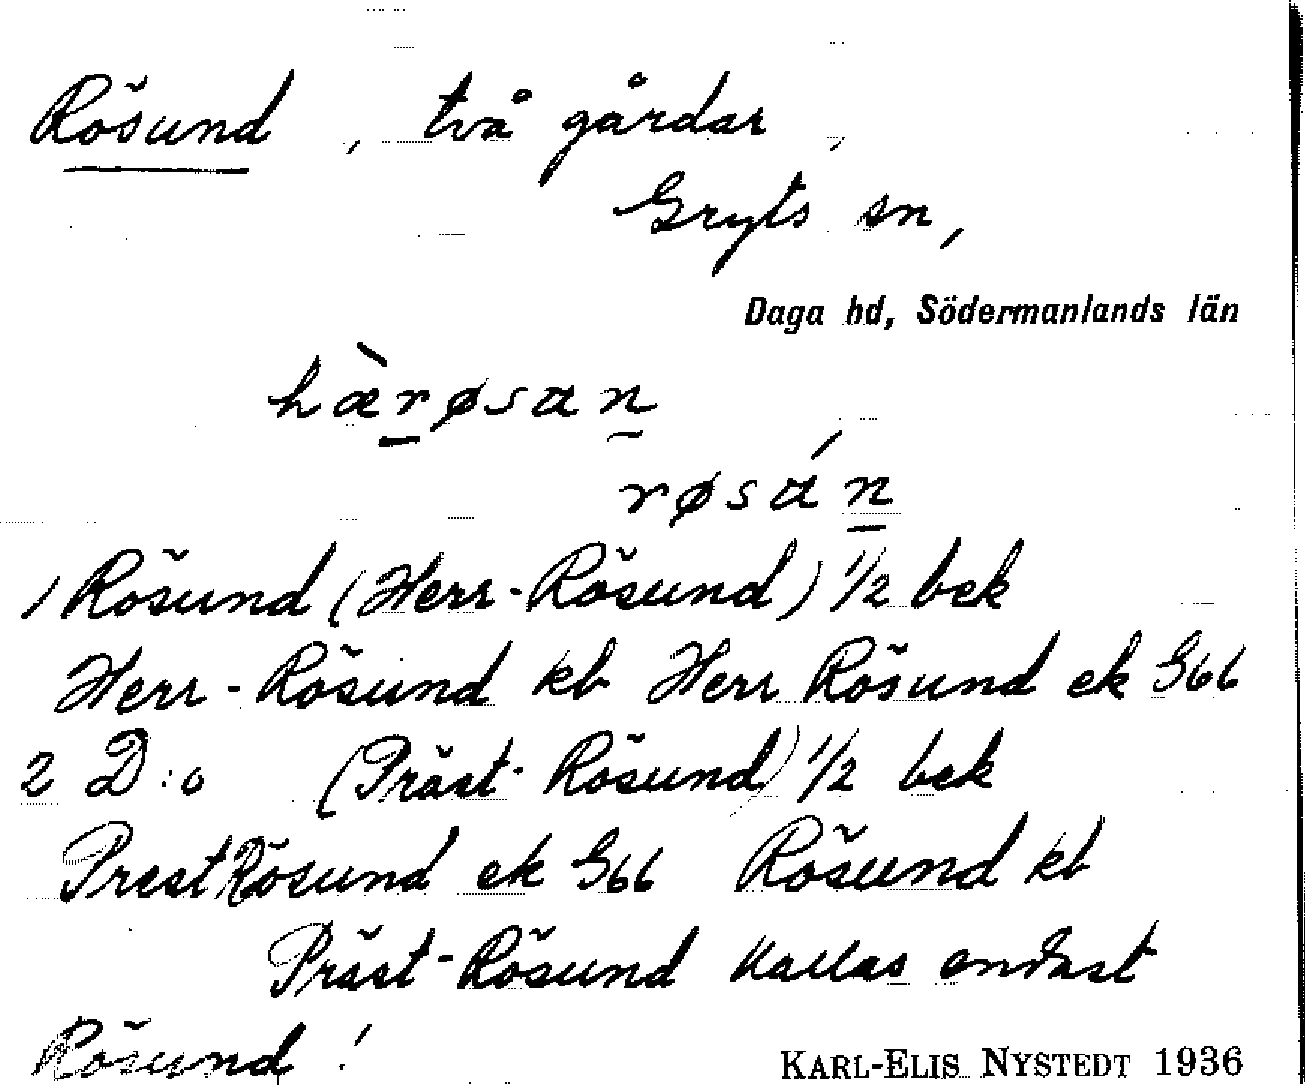 Rösund, två gårdar,
Gryts sn,
Daga hd, Södermanlands län
hæ̀røsan̠
røsán̠
1 Rösund (Herr-Rösund) 1/2 bek
Herr-Rösund kb Herr Rösund ek G66
2 D:o (Präst-Rösund) 1/2 bek
Prest Rösund ek G66 Rösund kb
Präst-Rösund kallas endast
Rösund!
KARL-ELIS NYSTEDT 1936